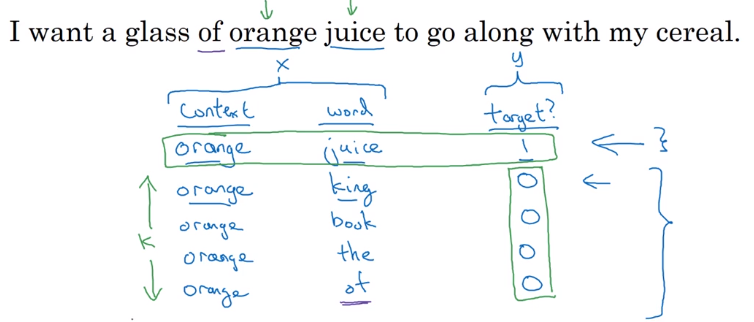 I want a glass of orange juice to go along with my cereal.
x y
context word target?
orange juice 1
orange king 0
orange book 0
K
orange the 0
orange of 0